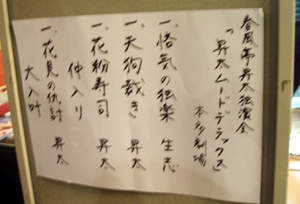 春風亭昇太独演会
「昇太ムードデラックス」
本多劇場
一、悋気の独楽 生志
一、天狗裁き 昇太
一、花粉寿司 昇太
仲入り
一、花見の仇討 昇太
大入叶